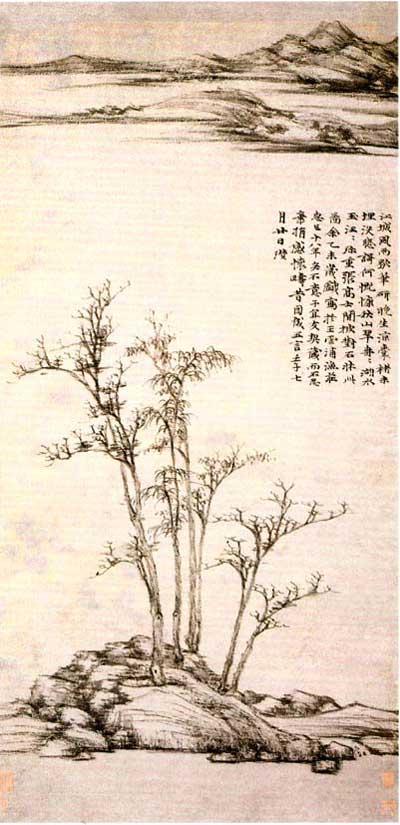 江城風雨歇筆研晚生涼囊楮未
埋沒悲歌何慨慷秋山翠冉〻湖水
玉汪〻珍重張高士閒披對石牀此
圖余乙未歲戲寫於王雲浦漁莊
忽已十八年矣不意子宜友契藏而不忍
棄捐感懷疇昔因成五言壬子七
月廿日瓚